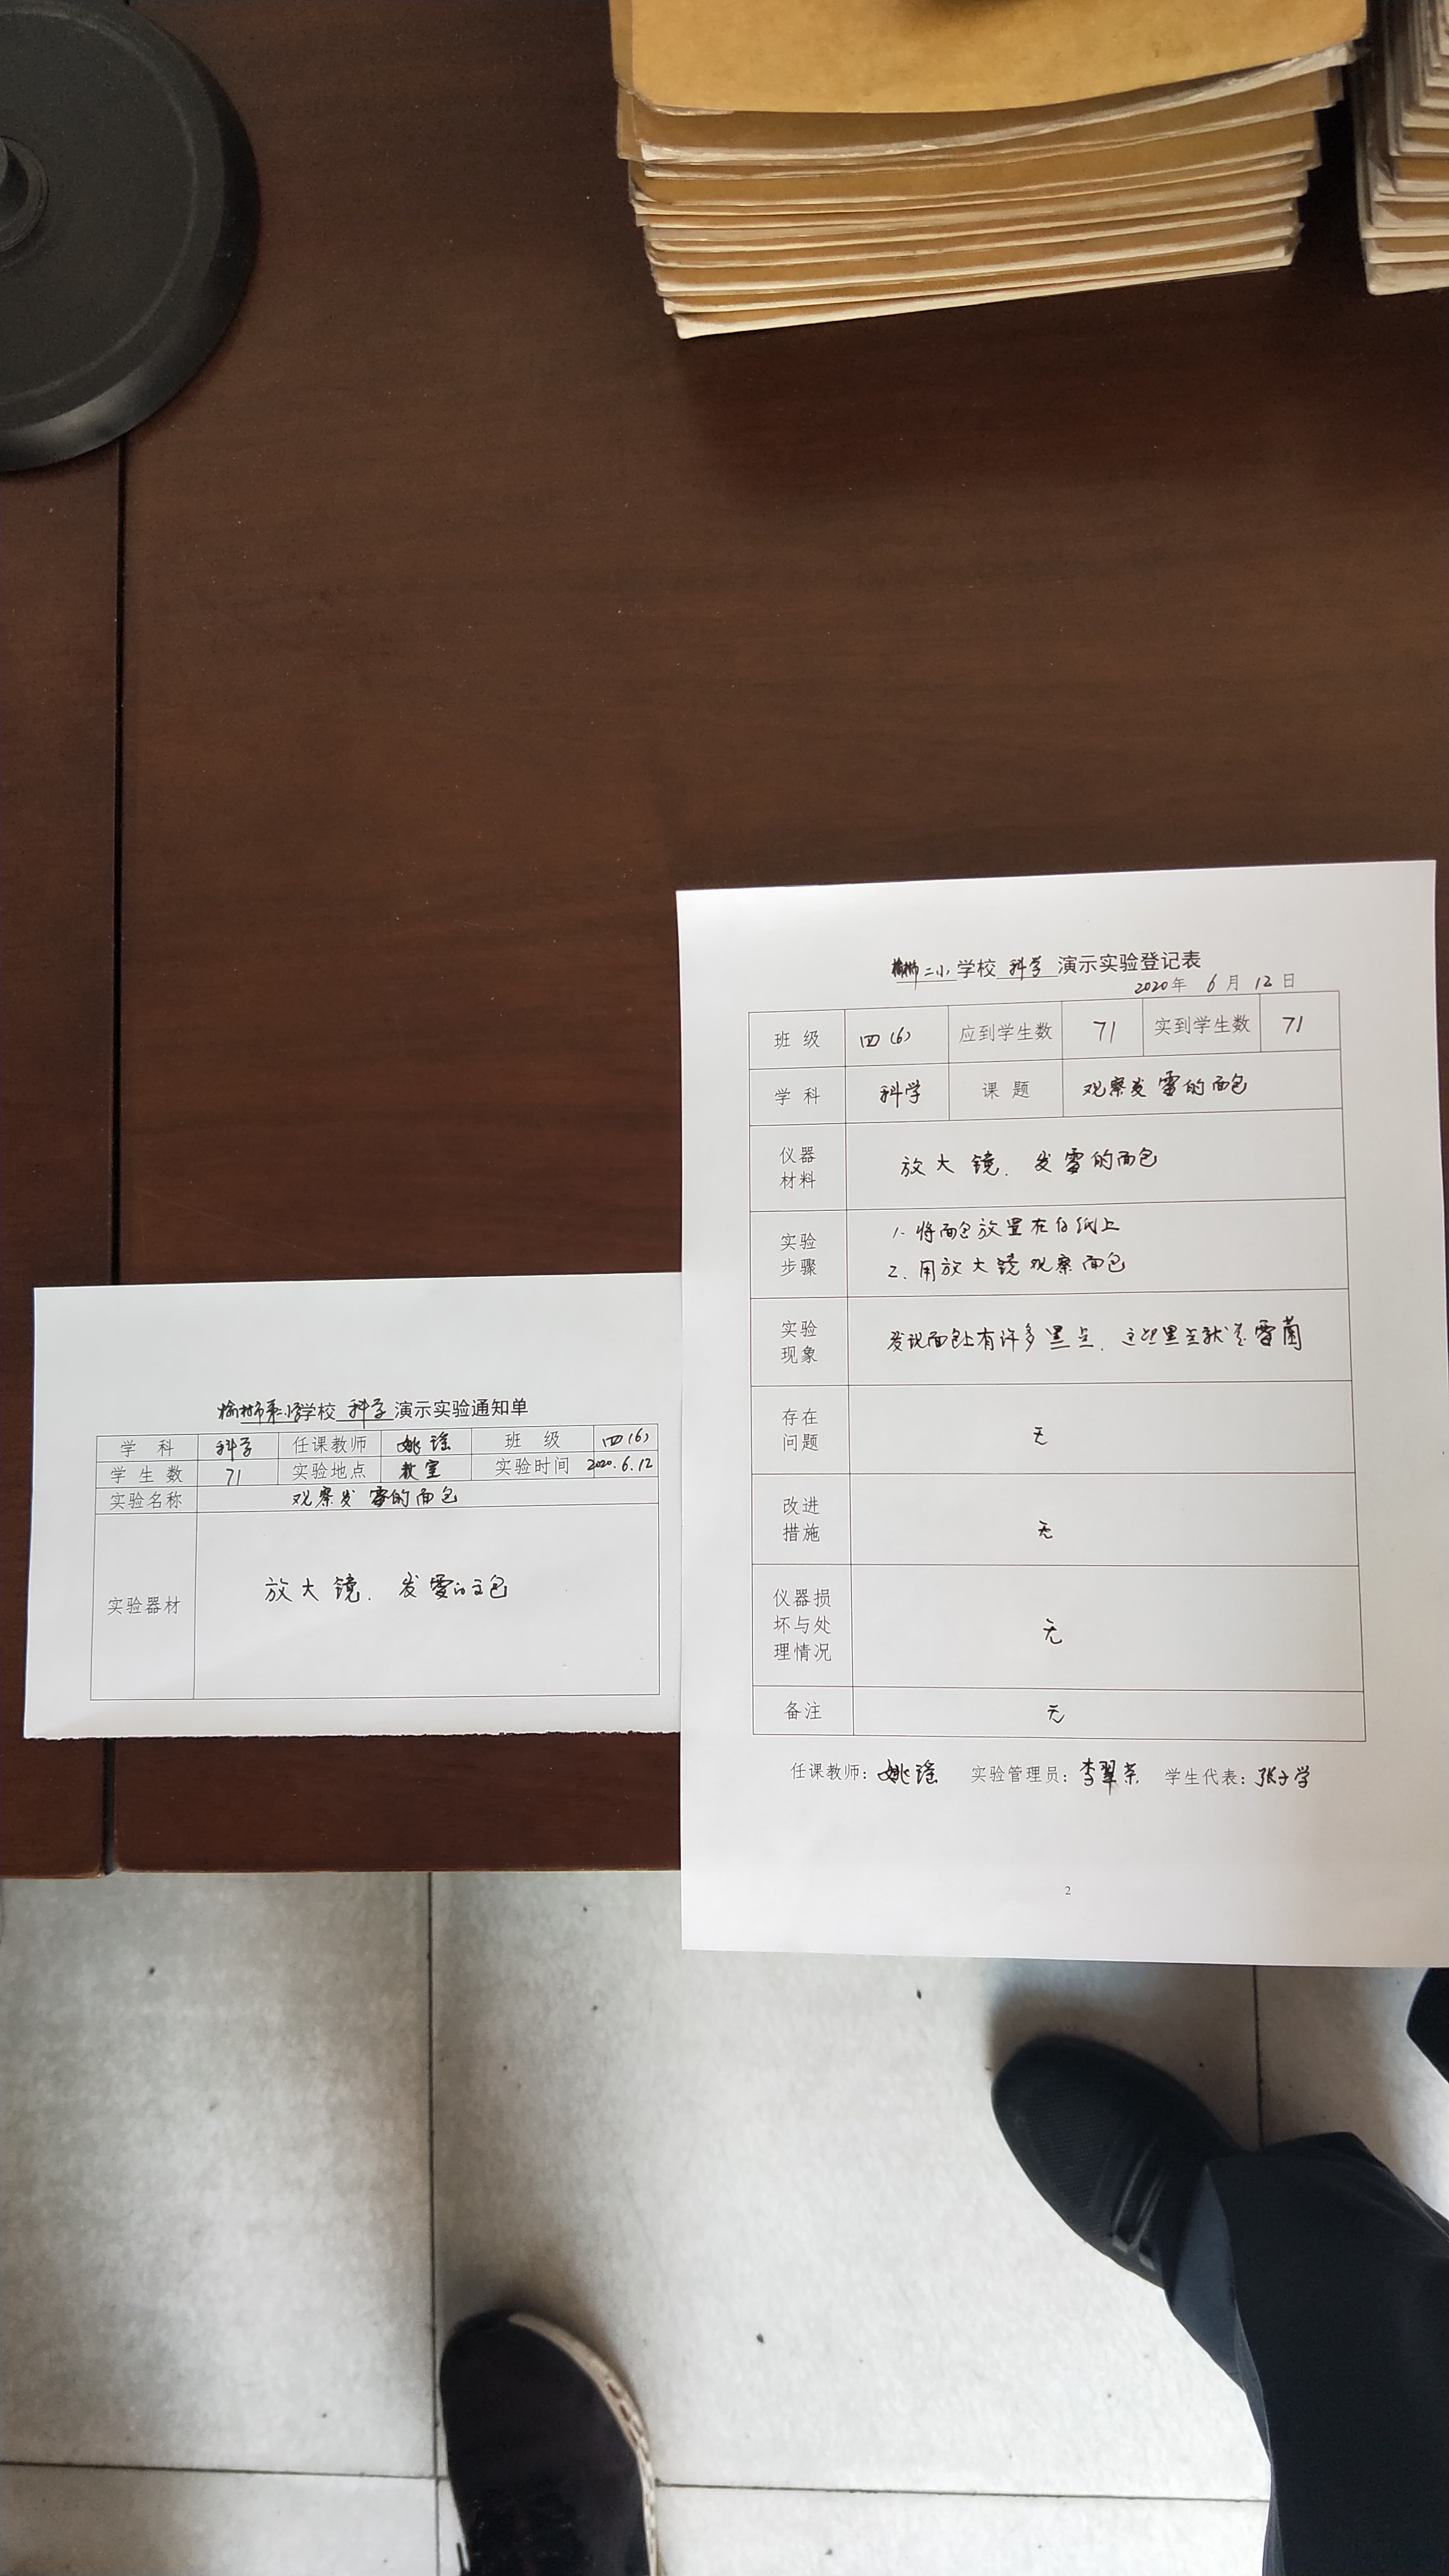 榆树市第二小学学校 科学 演示实验通知单
学 科 科学 任课教师 姚瑶 班 级 四(6)
学 生 数 71 实验地点 教室 实验时间 2020.6.12
实验名称 观察发霉的面包
实验器材 放大镜、发霉的面包
榆树二小 学校 科学 演示实验登记表
2020年 6月 12日
班 级 四(6) 应到学生数 71 实到学生数 71
学 科 科学 课 题 观察发霉的面包
仪器材料 放大镜、发霉的面包
实验步骤 1.将面包放置在白纸上
2.用放大镜观察面包
实验现象 发现面包上有许多黑点、这些黑点就是霉菌
存在问题 无
改进措施 无
仪器损坏与处理情况 无
备注 无
任课教师：姚瑶 实验管理员：李翠 学生代表：张子学
2